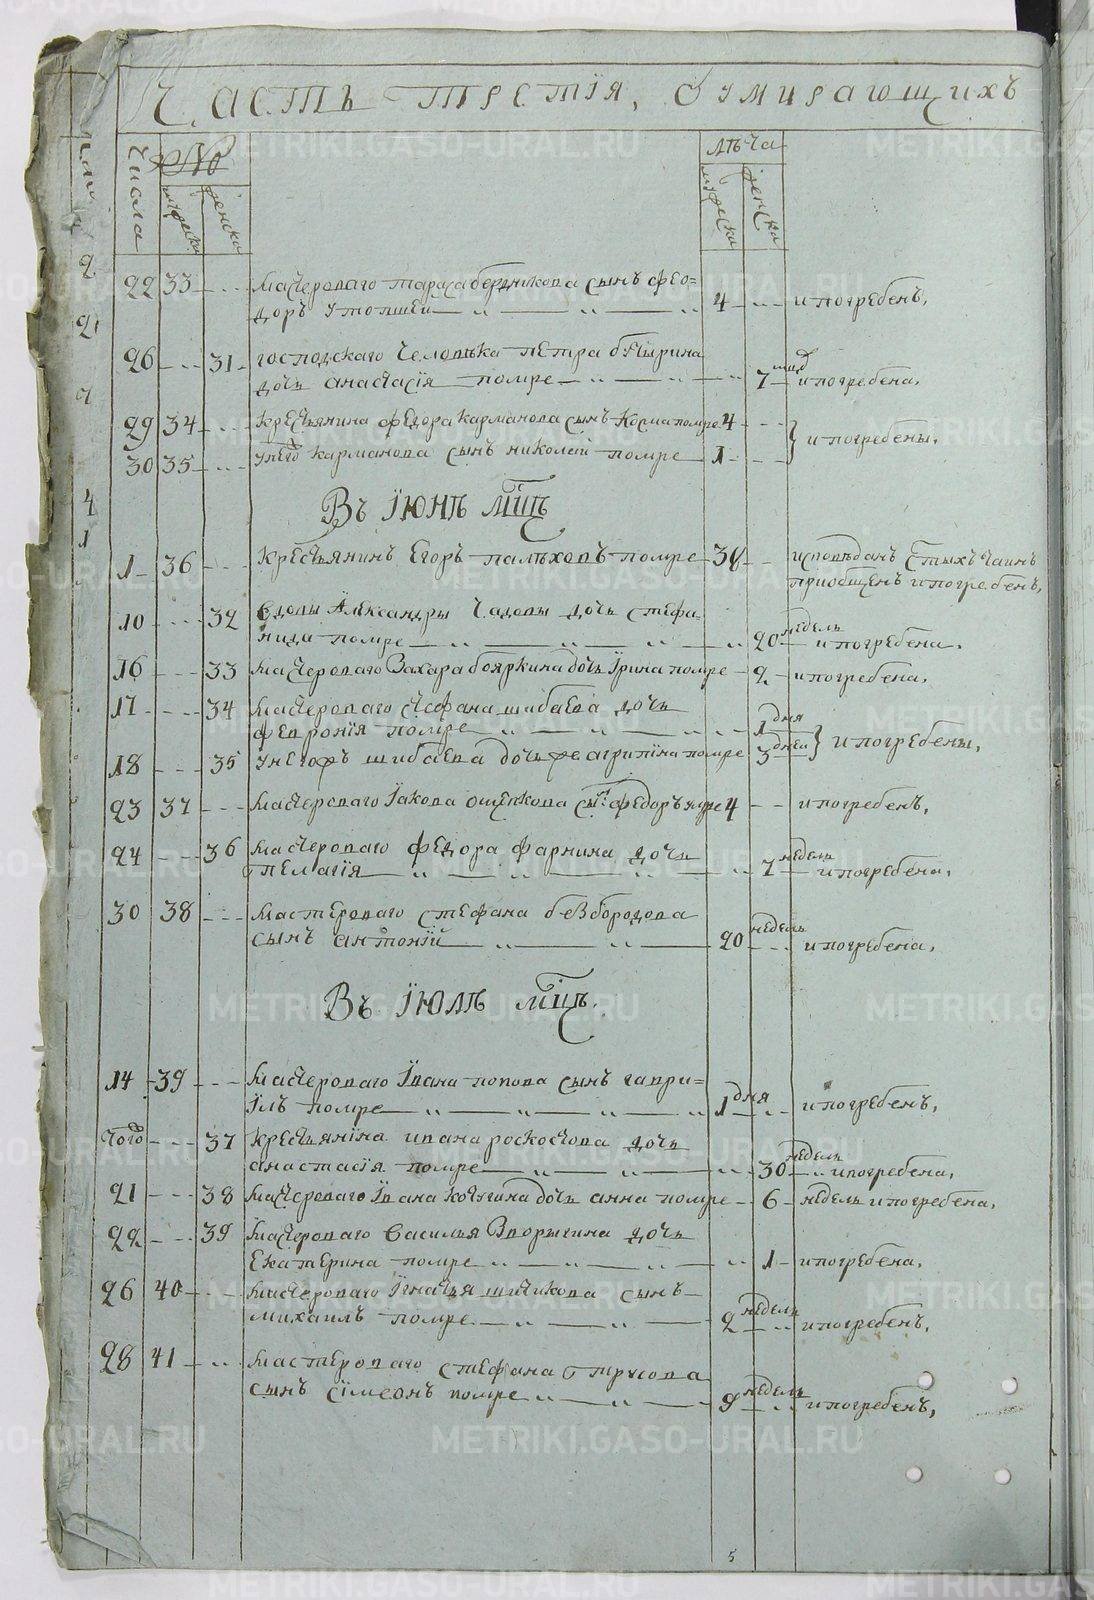 Часть третїя, Оумирающихъ
числа № мужеска женска лѣта мужеска женска
22 33 Мастероваго Тараса Бердникова сынъ Фео=
доръ утопшей 4 и погребенъ,
26 31 господскаго человѣка Петра
дочь Анастасїя помре 7 и погребена,
29 34 Крестьянина Федора Карманова сынъ Косма помре 4
и погребены,
30 35 у него Карманова сынъ Николай помре 1
Въ Їюнѣ мцѣ
1 36 Крестьянинъ Егоръ Пальховъ помре 38 исповѣданъ Стыхъ таинъ
приобщенъ и погребенъ,
10 32 Вдовы Александры Чадовы дочь Стефа-
нида помре 20 недель и погребена.
16 33 Мастероваго Захара Бояркина дочь Їрина помре 2 и погребена,
17 34 Мастероваго Стефана Шибаева дочь
Феврония помре 1 дня
и погребены,
18 35 у Егоръ Шибаева дочь Агрипїна помре 3 дней
23 37 Мастероваго Їакова сынъ Федоръ умре 4 и погребенъ,
24 36 Мастероваго Федора Фарнина дочь
Пелагїя 7 недель и погребена,
30 38 Мастероваго Стефана Безбородова
сынъ Антонїй 20 недель и погребена,
Въ Їюлѣ мцѣ.
14 39 Мастероваго Ївана Попова сынъ Гаври=
їлъ помре 1 дня и погребенъ,
того 37 Крестьянїна Ивана Роскостова дочь
Анастасїя помре 30 недель и погребена,
21 38 Мастероваго Ївана Кочугина дочь Анна помре 6 недель и погребена,
22 39 Мастероваго Василья Вворыгина дочь
Екатерина помре 1 и погребена,
26 40 Мастероваго Їгнатья сынъ
Михаилъ помре 2 недель и погребенъ,
28 41 Мастероваго Стефана Отрусова
сынъ Сїмеонъ помре 9 недель и погребенъ,
5
METRIKI.GASO-URAL.RU